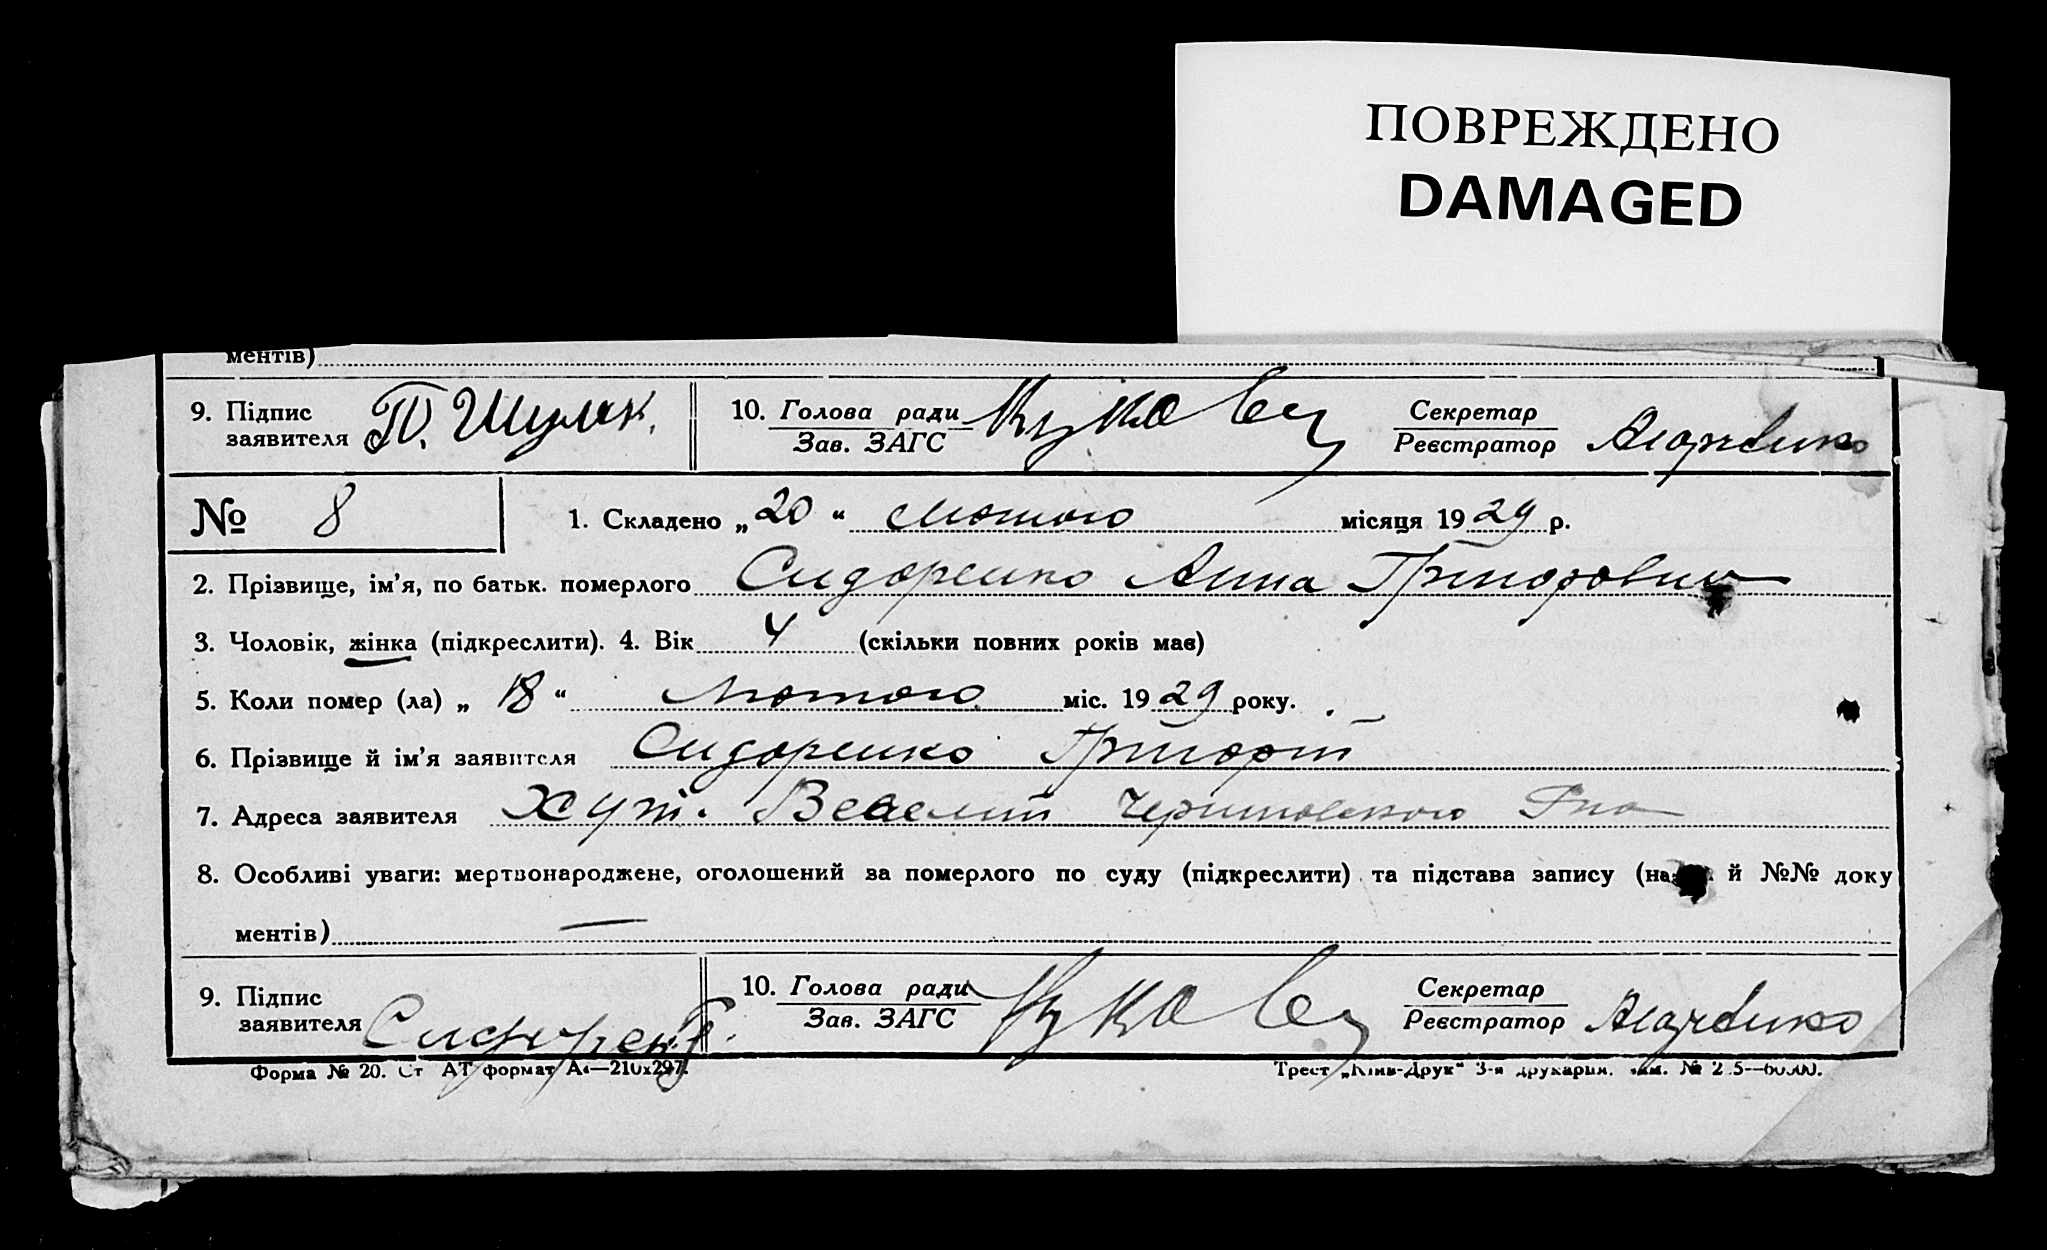 ПОВРЕЖДЕНО
DAMAGED
ментів)
9. Підпис заявителя П. Шуляк. 10. Голова ради Зав. ЗАГС Секретар Реєстратор
№ 8 1. Складено „20“ Лютого місяця 1929 р.
2. Прізвище, ім’я, по батьк. померлого Сидоренко Анна Григоровна
3. Чоловік, жінка (підкреслити). 4. Вік 4 (скільки повних років має)
5. Коли помер (ла) „18“ Лютого міс. 1929 року.
6. Прізвище й ім’я заявителя Сидоренко Григорій
7. Адреса заявителя Хут. Веселий
8. Особливі уваги: мертвонароджене, оголошений за померлого по суду (підкреслити) та підстава запису й №№ доку
ментів) —
9. Підпис заявителя 10. Голова ради Зав. ЗАГС Секретар Реєстратор
Форма № 20. Ст АТ формат А4—210х297.
Трест „Київ-Друк“ 3-я друкарня.